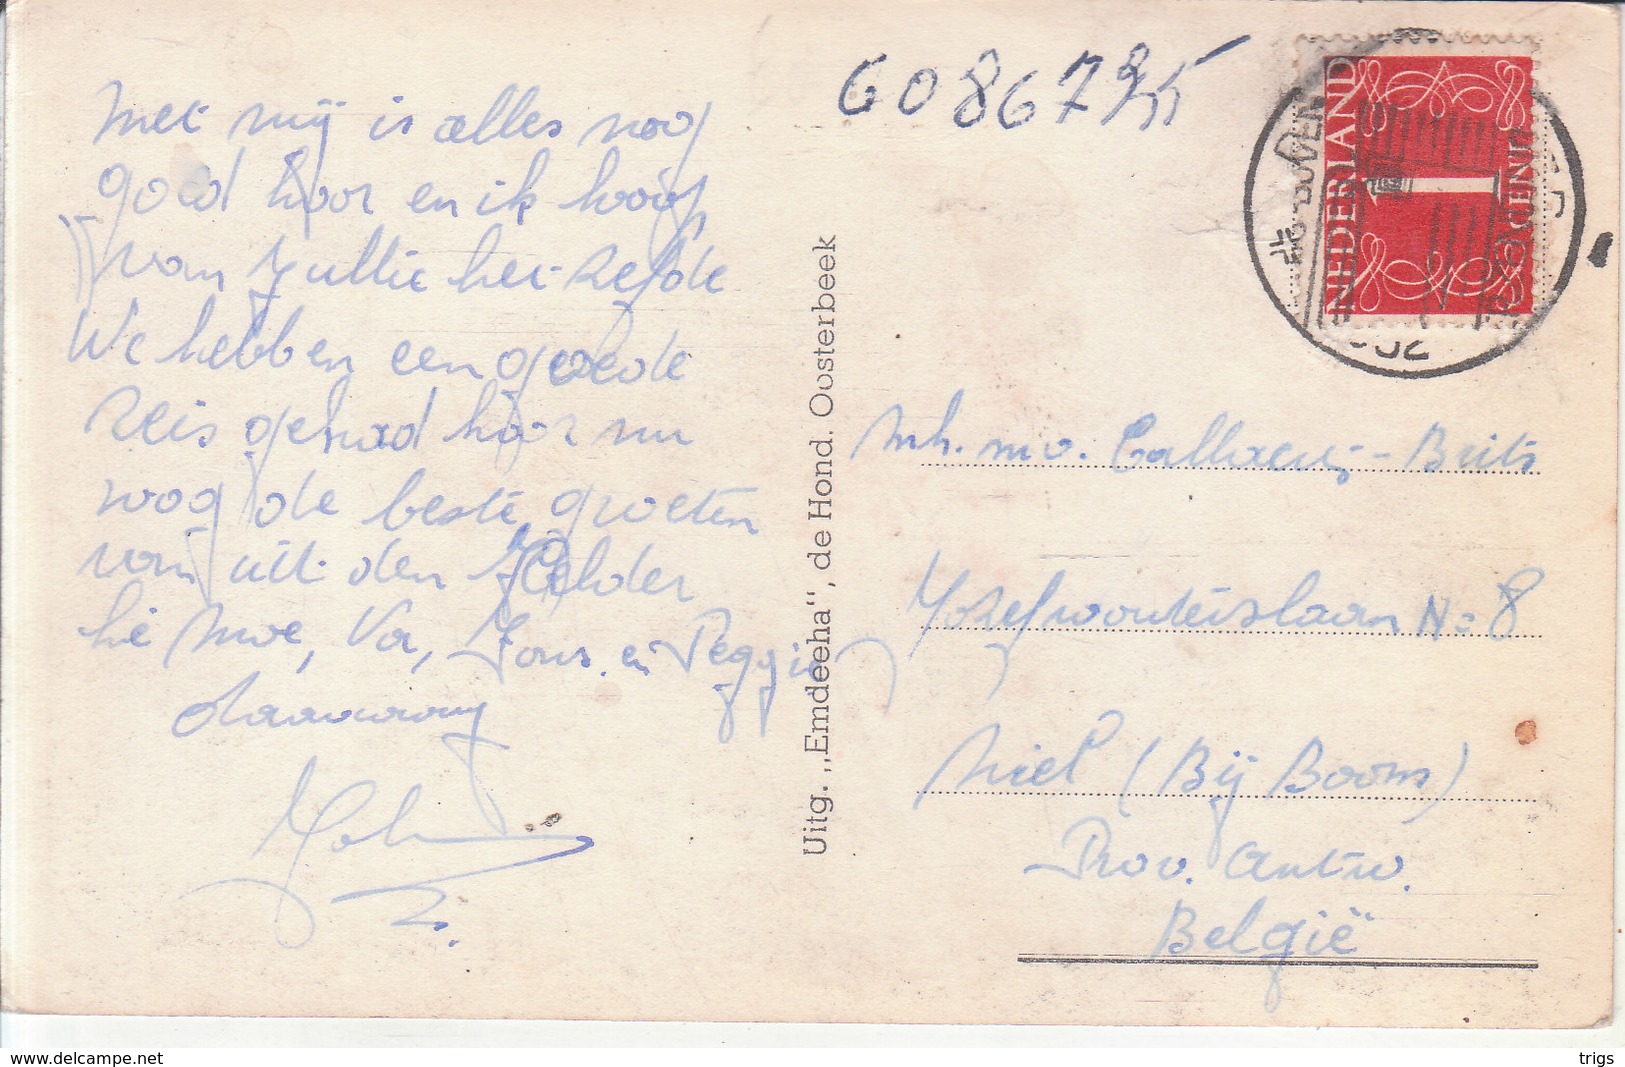 Met mij is alles nog
goed hoor en ik hoop
van jullie het zelfde
We hebben een goede
reis gehad hoor nu
nog de beste groeten
van uit den Helder
Moe, Va, en Peggie
John
Uitg. „Emdeeha", de Hond. Oosterbeek
NEDERLAND
1
CENT
Callaerts-Brits
Jozefwouterslaan No 8
Niel (Bij Boom)
Prov. Antw.
België
www.delcampe.net
trigs